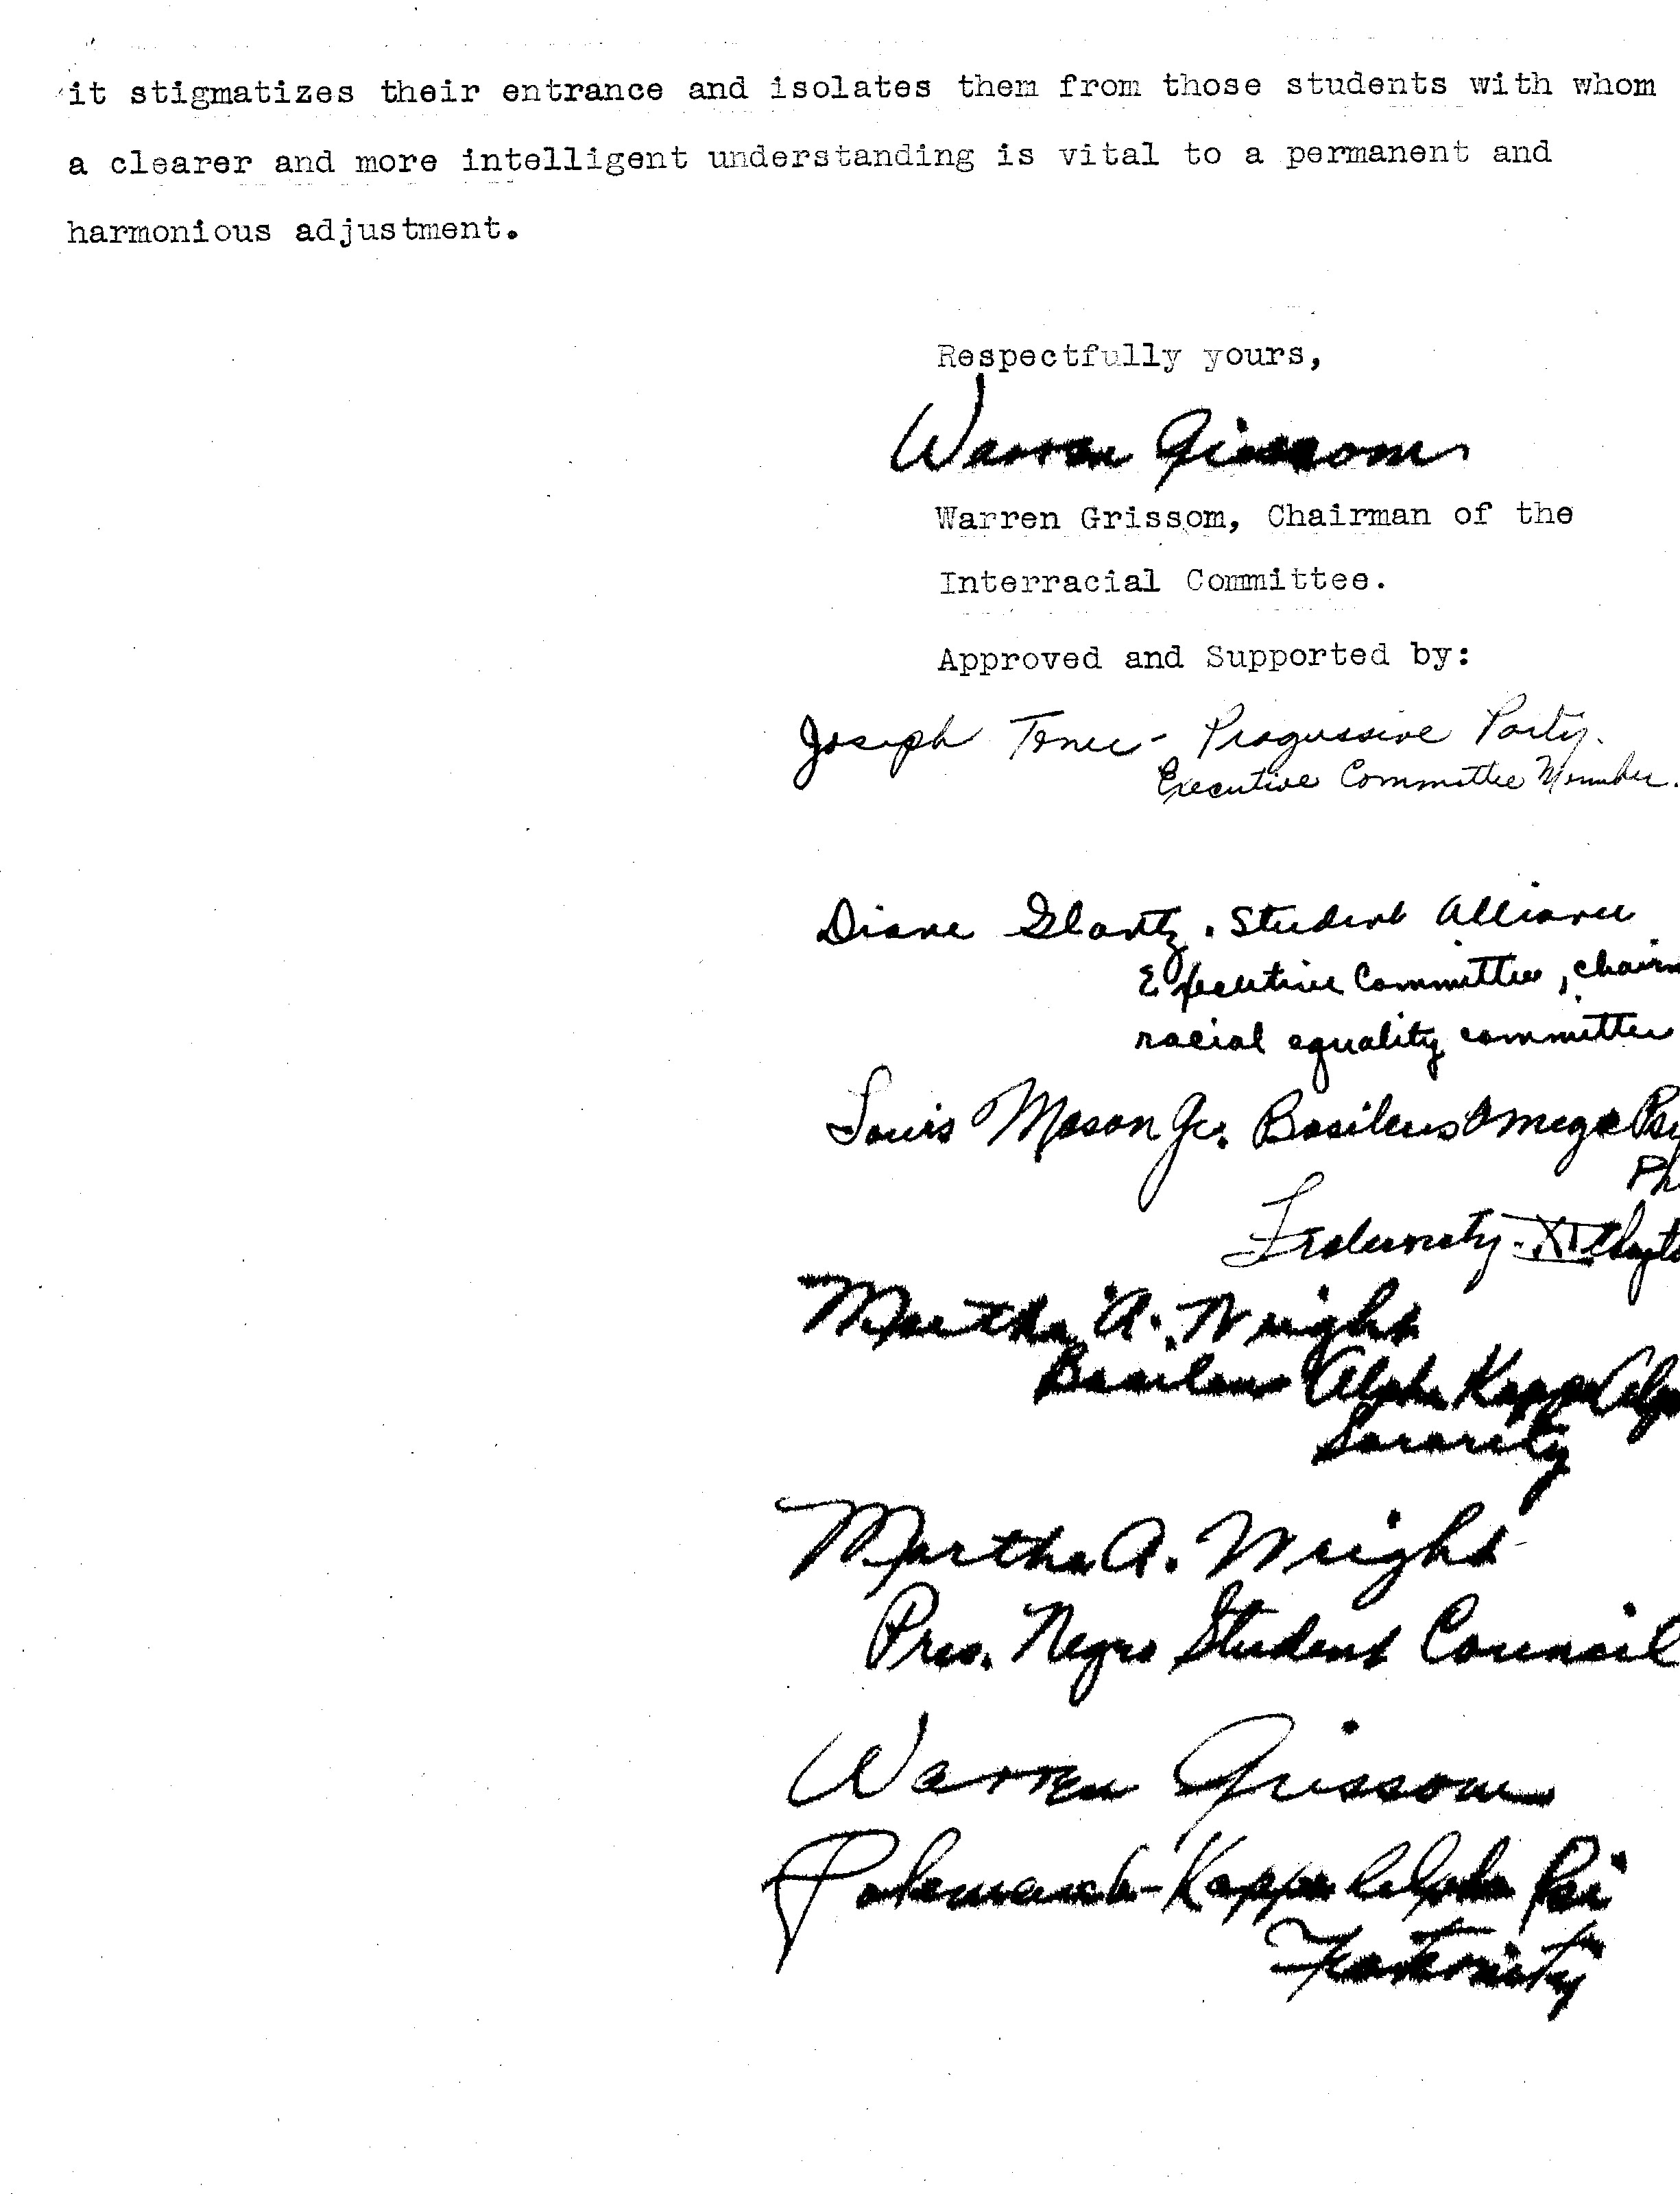 it stigmatizes their entrance and isolates them from those students with whom
a clearer and more intelligent understanding is vital to a permanent and
harmonious adjustment.
Respectfully yours,
Warren Grissom
Warren Grissom, Chairman of the
Interracial Committee.
Approved and Supported by:
Joseph - Progressive Party.
Executive Committee Member.
Diane Glantz. Student Alliance
Executive Committee, chairm
racial equality committee
Louis Mason Jr. Basileus Omega Psi
Ph
Fraternity - XI Chapte
Martha A. Wright
Basileus Alpha Kappa Alp
Sorority
Martha A. Wright
Pres. Negro Student Council
Warren Grissom
Polemarch - Kappa Alpha Psi
Fraternity